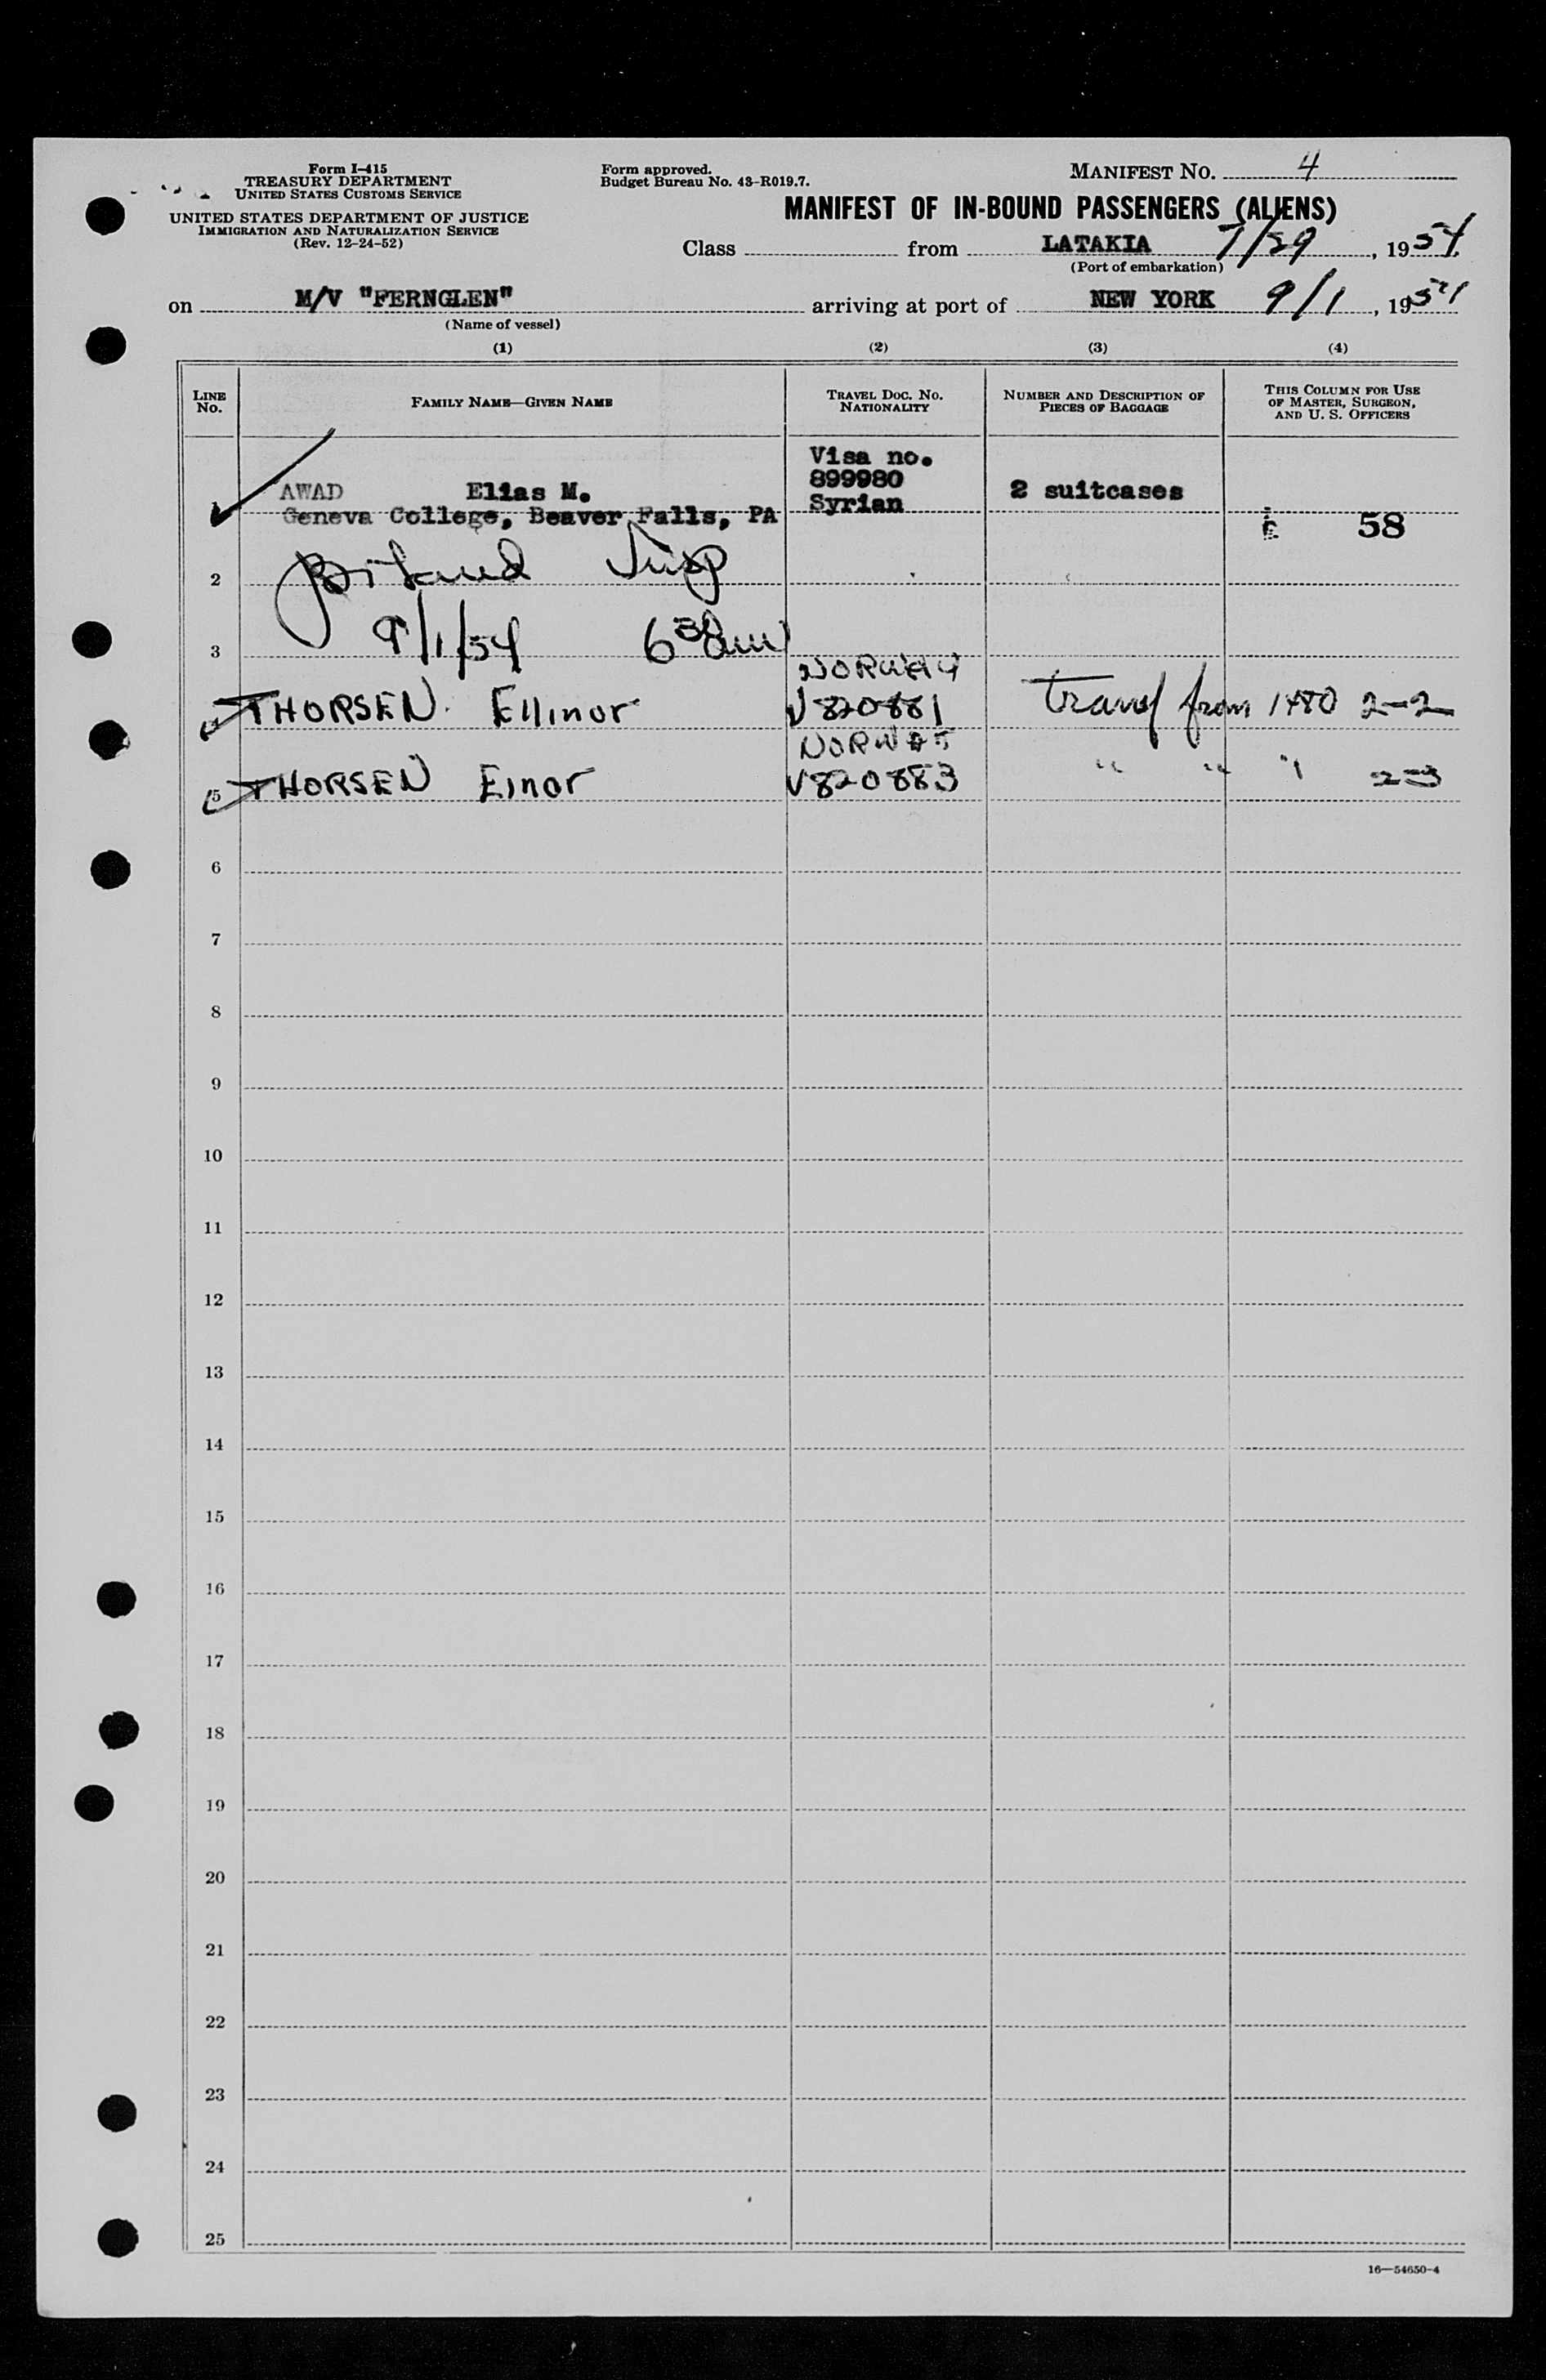 Form I-415
TREASURY DEPARTMENT
UNITED STATES CUSTOMS SERVICE
UNITED STATES DEPARTMENT OF JUSTICE
IMMIGRATION AND NATURALIZATION SERVICE
(Rev. 12-24-52)
Form approved.
Budget Bureau No. 43-R019.7.
MANIFEST NO. 4
MANIFEST OF IN-BOUND PASSENGERS (ALIENS)
Class from LATAKIA 7/29, 1954
(Port of embarkation)
on M/V "FERNGLEN" arriving at port of NEW YORK 9/1, 1954
(Name of vessel)
(1) (2) (3) (4)
LINE No. FAMILY NAME—GIVEN NAME TRAVEL DOC. NO. NATIONALITY NUMBER AND DESCRIPTION OF PIECES OF BAGGAGE THIS COLUMN FOR USE OF MASTER, SURGEON, AND U. S. OFFICERS
Visa no.
899980
1 AWAD Elias M. Syrian 2 suitcases
Geneva College, Beaver Falls, PA
58
2 Insp
3 9/1/54 6
NORWAY
THORSEN Ellinor V820881 Transf from 1480 2-2
NORWAY
5 THORSEN Einar V820883 " " " 2-3
6
7
8
9
10
11
12
13
14
15
16
17
18
19
20
21
22
23
24
25
16—54650-4